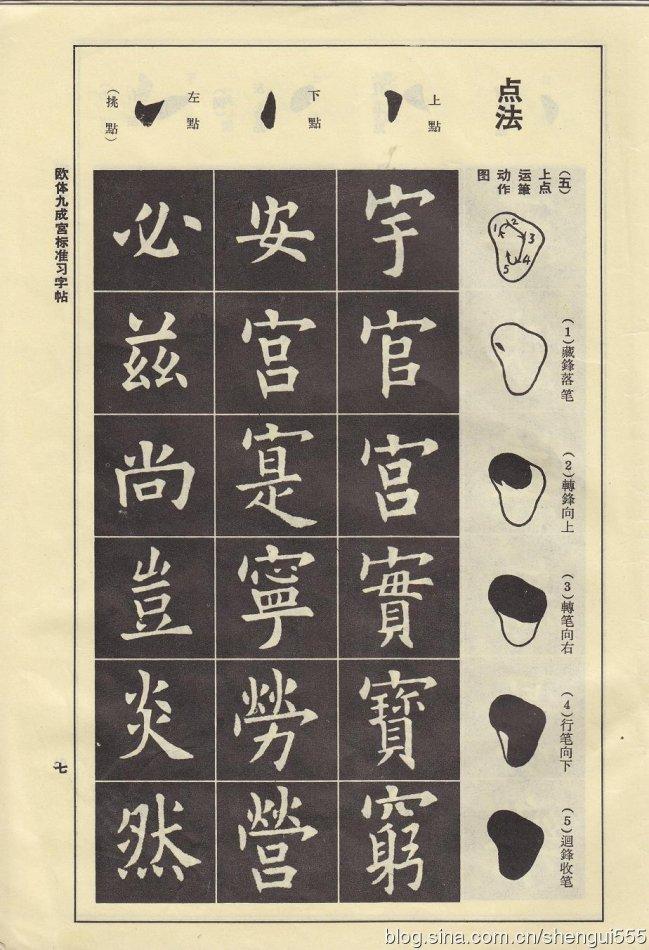 点法
上點
下點
左點
(挑點)
(五)
上点
运筆
动作
图
1 2 3 4 5
(1)藏鋒落笔
(2)轉鋒向上
(3)轉笔向右
(4)行笔向下
(5)迴鋒收笔
宇官宫實寶窮
安宫寔寧勞營
必茲尚豈炎然
欧体九成宫标准习字帖
七
blog.sina.com.cn/shengui555